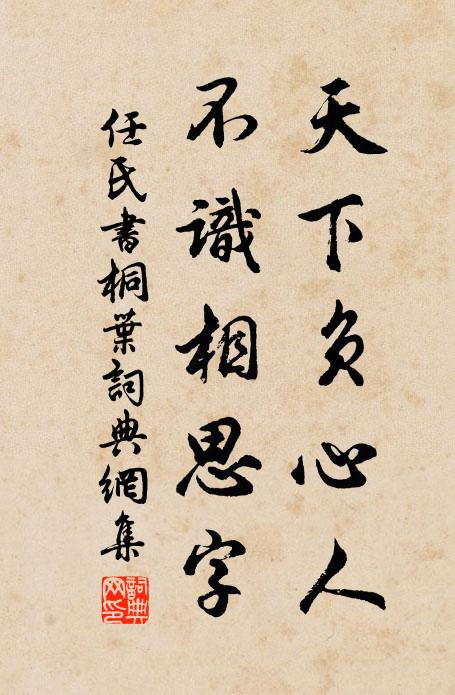 天下負心人
不識相思字
任氏書桐葉詞典網集
詞典
网印